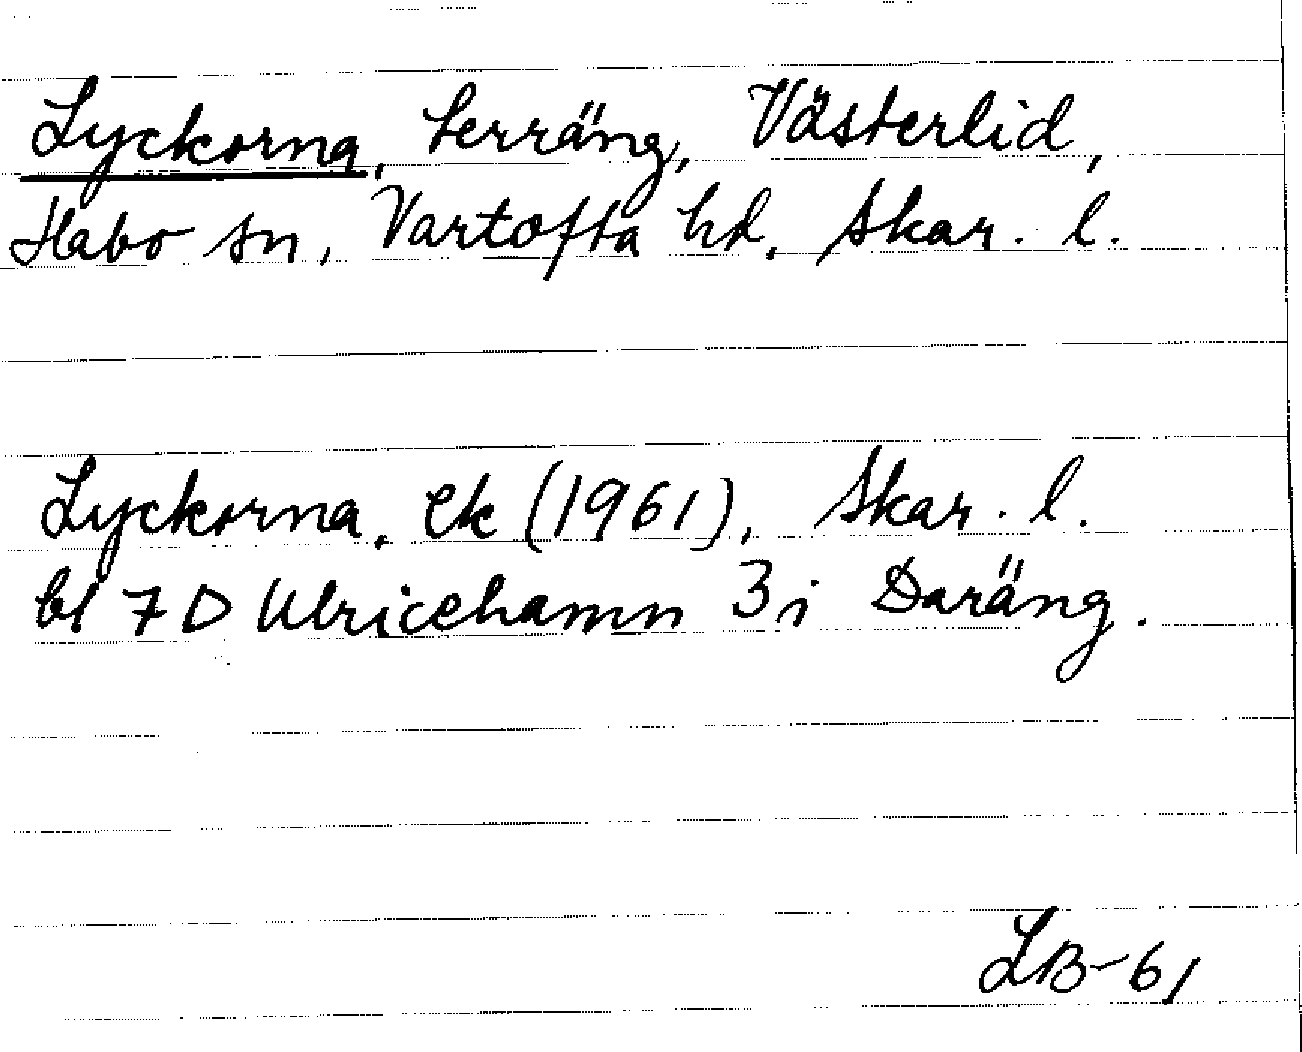 Lyckorna, terräng, Västerlid,
Habo sn, Vartofta hd. Skar. l.
Lyckorna. Ek (1961), Skar. l.
bl 7 D Ulricehamn 3 i Daräng.
LB-61